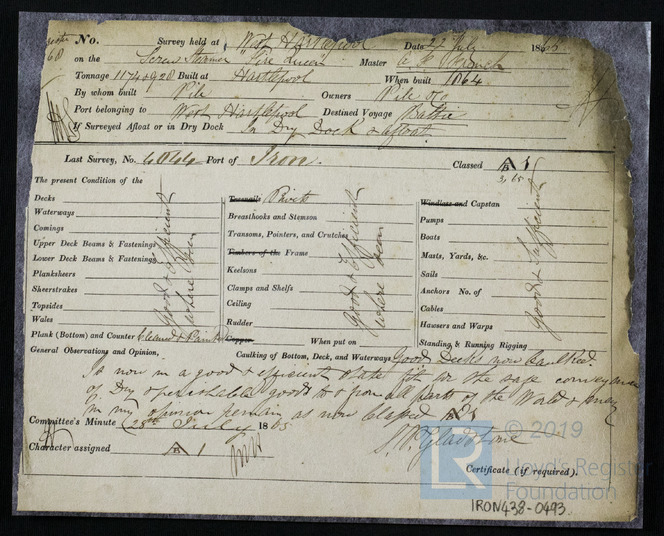 No. Survey held at West Hartlepool Date 22 July 1865
68
on the Screw Steamer "Fire Queen" Master
Tonnage 1174 & 928 Built at Hartlepool When built 1864
By whom built Pile Owners Pile & Co
Port belonging to West Hartlepool Destined Voyage Baltic
If Surveyed Afloat or in Dry Dock In Dry Dock & afloat
Last Survey, No. Port of Iron. Classed A 1
3, 65
The present Condition of the
Decks
Waterways
Comings
Upper Deck Beams & Fastenings
Lower Deck Beams & Fastenings
Planksheers
Sheerstrakes
Topsides
Wales
Plank (Bottom) and Counter Cleaned & Painted
Good & Efficient where seen
Treenails Rivets
Breasthooks and Stemson
Transoms, Pointers, and Crutches
Timbers of the Frame
Keelsons
Clamps and Shelfs
Ceiling
Rudder
Copper When put on
Good & Efficient where seen
Windlass and Capstan
Pumps
Boats
Masts, Yards, &c.
Sails
Anchors No. of
Cables
Hawsers and Warps
Standing & Running Rigging
Good & Efficient
General Observations and Opinion, Caulking of Bottom, Deck, and Waterways Good. Decks now Caulked.
Is now in a good & efficient state fit for the safe conveyance
of Dry & perishable goods to & from all parts of the World &
in my opinion remain as now Classed A 1
Committee's Minute 25th July 1865
S. P. Gladstone
Character assigned A 1
B
Certificate (if required).
© 2019
LR
Lloyd's Register
Foundation
IRON438-0493